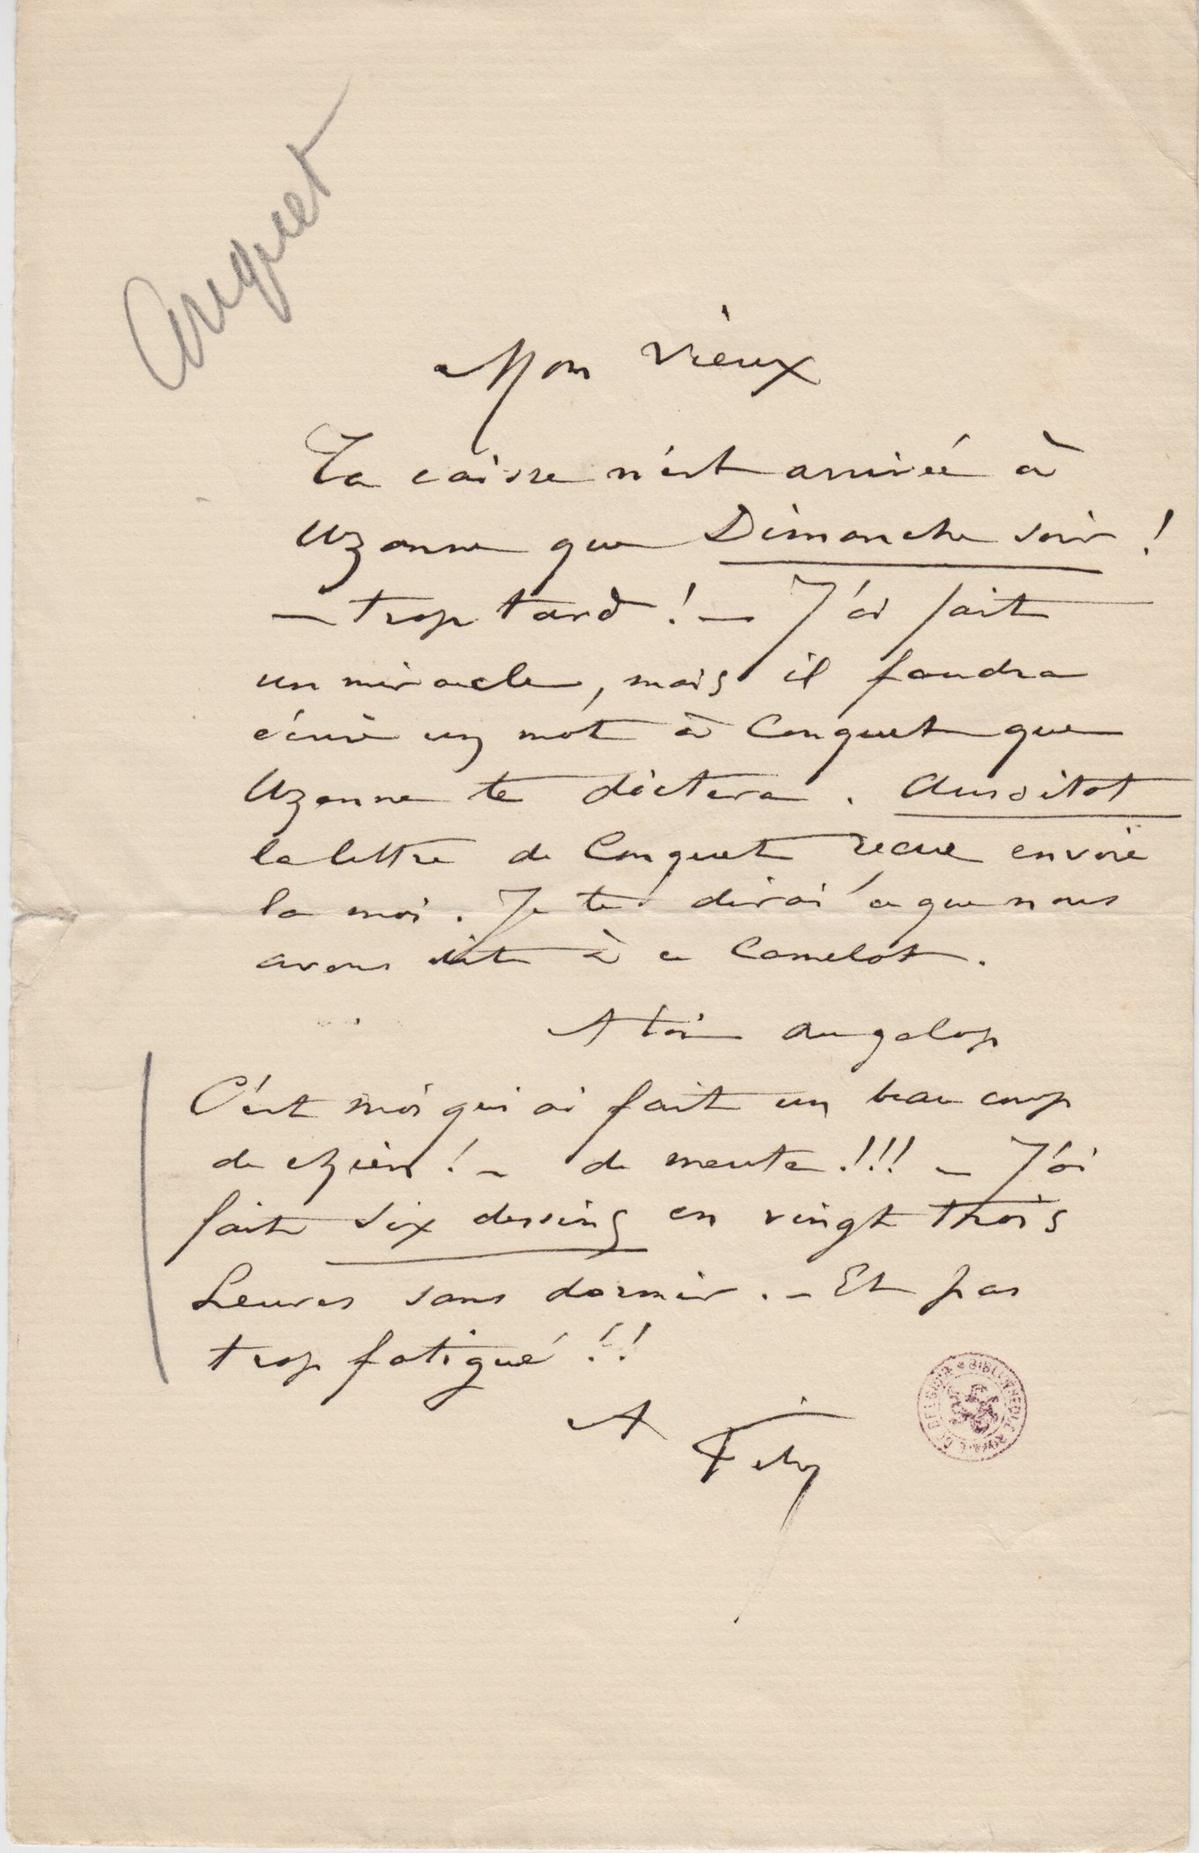 Conquet
Mon vieux
Ta caisse n'est arrivée à
Uzanne que Dimanche soir !
– trop tard ! – J'ai fait
un miracle, mais il faudra
écrire un mot à Conquet que
Uzanne te dictera . Aussitot
la lettre de Conquet recue envoie
la moi . Je te dirai ce que nous
avons dit à ce Camelot .
A toi au galop
C'est moi qui ai fait un beau coup
de chien ! – de meute !!! – J'ai
fait six dessins en vingt trois
heures sans dormir . – Et pas
trop fatigué !!
A toi
Fély
BIBLIOTHEQUE ROYALE DE BELGIQUE